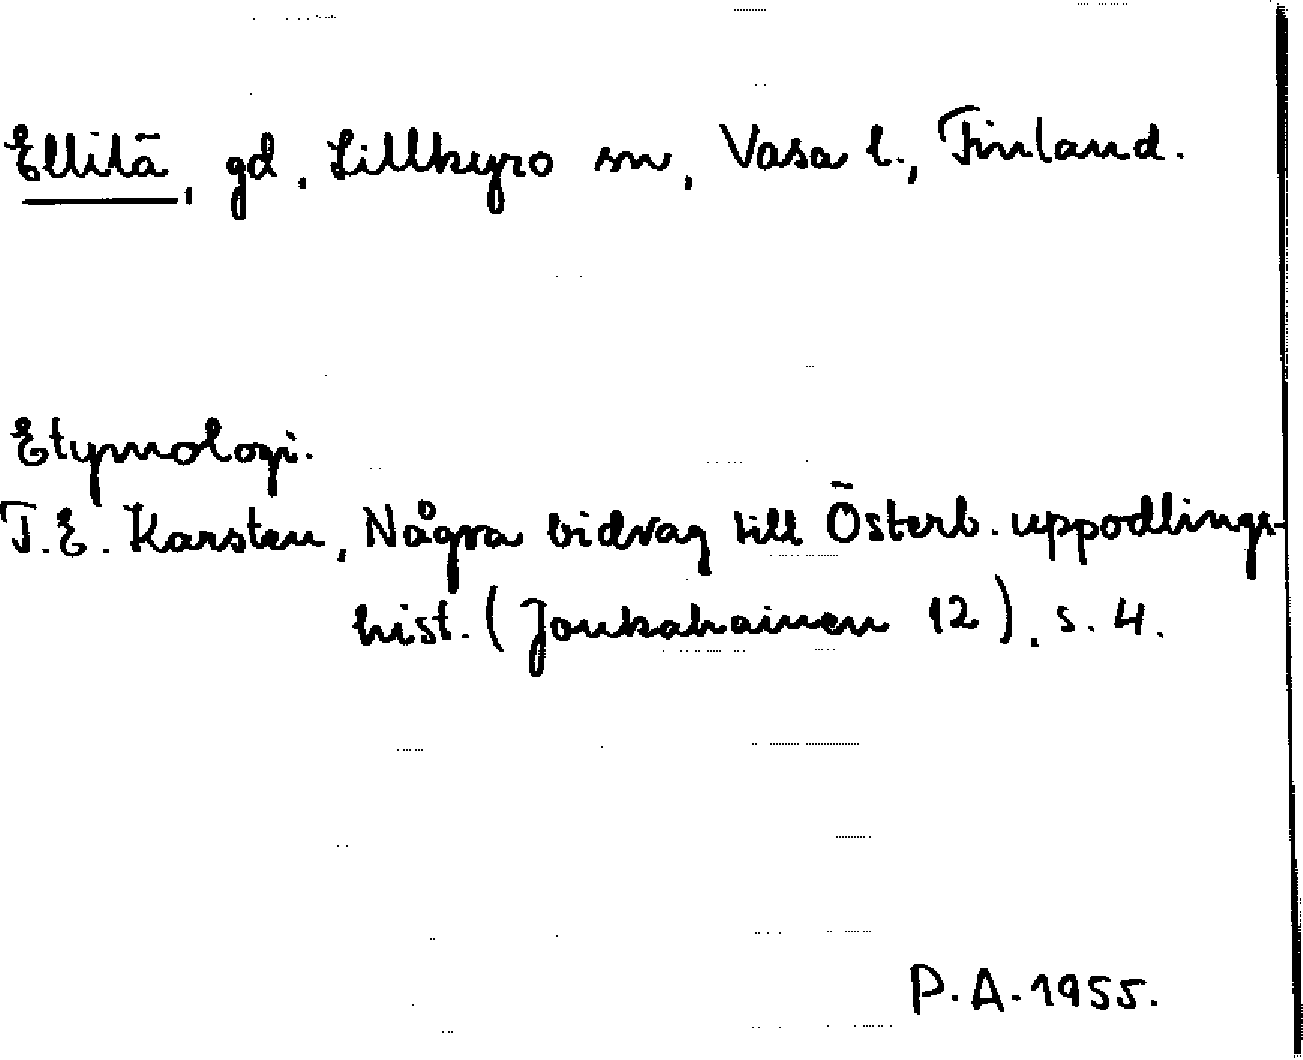 Ellilä, gd, Lillkyro sn, Vasa l., Finland.
Etymologi.
T.E. Karsten, Några bidrag till Österb. uppodlings-
hist. (Joukahainen 12), s. 4.
P.A. 1955.